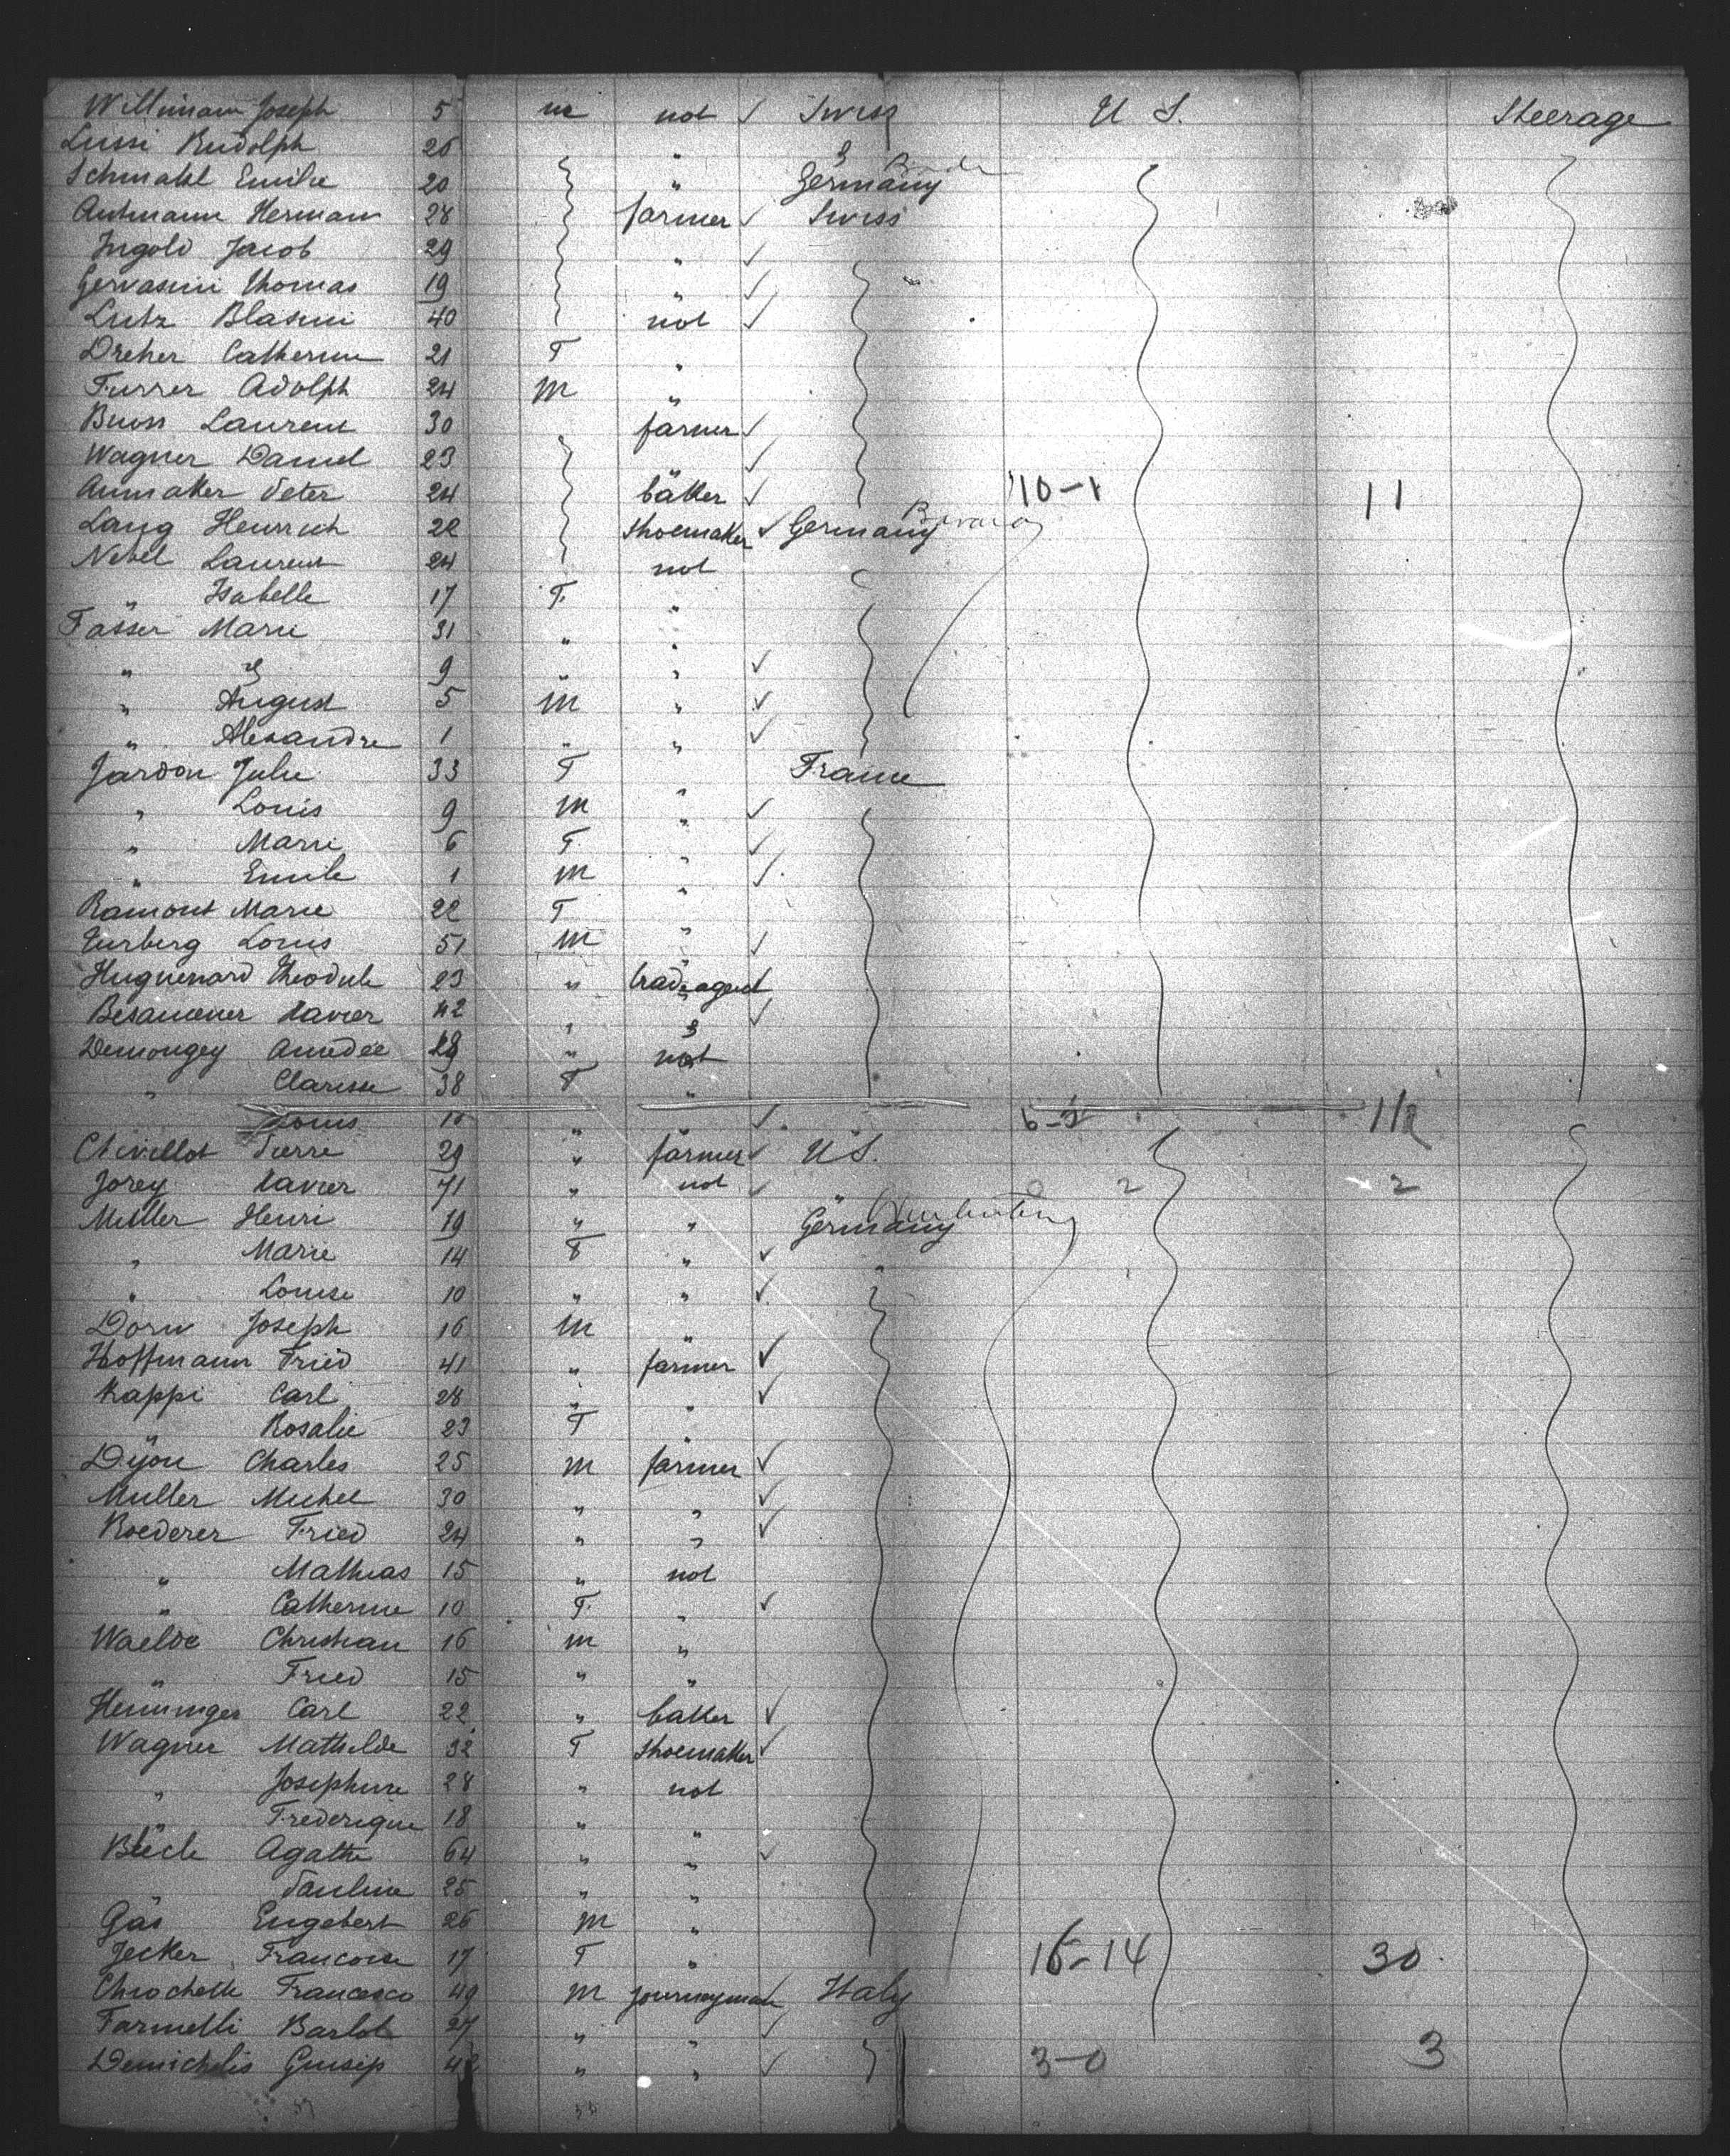 Willimann Joseph 5 m not ✓ Swiss U S. Steerage
Lussi Rudolph 26 "
Schmahl Emilie 20 " Germany
Autmann Herman 28 farmer ✓ Swiss
Ingold Jacob 29 " ✓
Gervasini Thomas 19 " ✓
Lutz Blasini 40 not ✓
Dreher Catherine 21 F "
Furrer Adolph 24 m "
Buoss Laurent 30 farmer ✓
Wagner Daniel 23 " ✓
Anmaker Peter 24 baker ✓ 10-1 11
Lang Heinrich 22 shoemaker ✓ Germany Bavaria
Nebel Laurent 24 not
" Isabelle 17 F. "
Fasser Marie 31 " "
" 9 " " ✓
" August 5 m " ✓
" Alexandre 1 " " ✓
Jardon Julie 33 F " France
" Louis 9 m " ✓
" Marie 6 F. " ✓
" Emile 1 m " ✓
Ramont Marie 22 F "
Turberg Louis 51 m " ✓
Huguenard Theodule 23 " trade agent
Besancener Xavier 42 " " ✓
Demougey Amedée 29 " not
" Clarisse 38 F "
Louis 16 " ✓ 6-5 11
Chivillot Pierre 29 " farmer ✓ U S.
Jorey Xavier 71 " not ✓ 2 2
Muller Henri 19 " " Germany
" Marie 14 F " ✓
" Louise 10 " " ✓
Dorn Joseph 16 m "
Hoffmann Fried 41 " farmer ✓
Kappi Carl 28 " " ✓
" Rosalie 23 F "
Dijon Charles 25 m farmer ✓
Muller Michel 30 " " ✓
Roederer Fried 24 " " ✓
" Mathias 15 " not
" Catherine 10 F. " ✓
Waelde Christian 16 m "
" Fried 15 " "
Henninger Carl 22 " baker ✓
Wagner Mathilde 32 F shoemaker ✓
" Josephine 28 " not
" Frederique 18 " "
Bücle Agathe 64 " " ✓
" Pauline 25 " "
Gäs Engebert 26 m "
Jecker Francoise 17 F " 16-14 30
Chiochetti Francesco 49 m journeyman ✓ Italy
Farinelli Barlot 27 " " ✓
Demichelis Giusep 42 " " ✓ 3-0 3